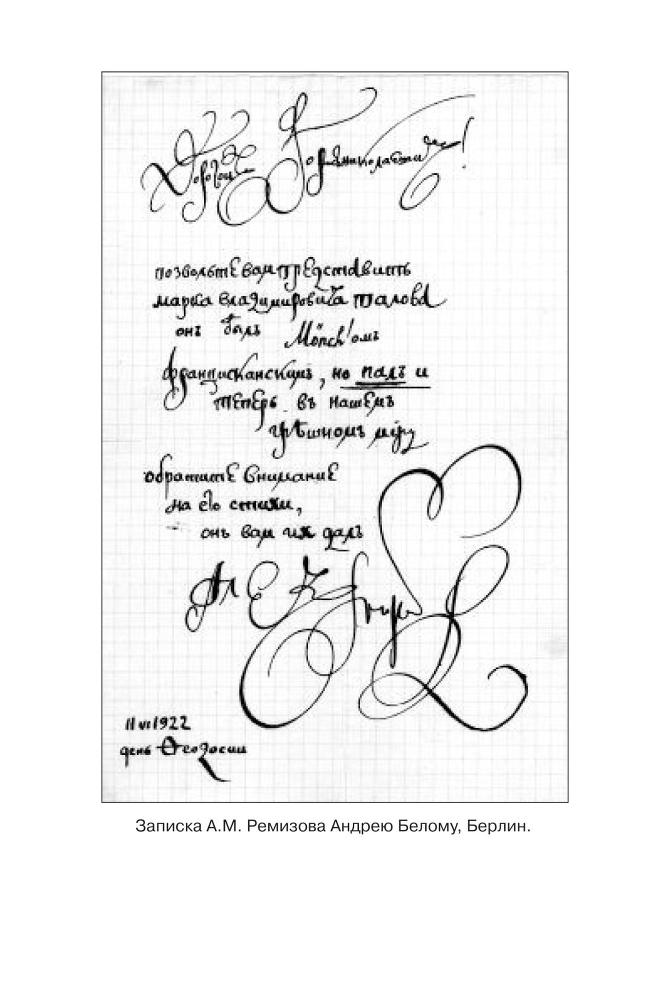 Дорогой Борис Николаевич!
позвольте вам представить
марка владимировича талова
онъ былъ Mönch'омъ
францисканскимъ, но палъ и
теперь въ нашемъ
грѣшномъ мiру
обратите внимание
на его стихи,
онъ вам их далъ
Алексей Ремизов
11 VI 1922
день Ѳеодосии
Записка А.М. Ремизова Андрею Белому, Берлин.